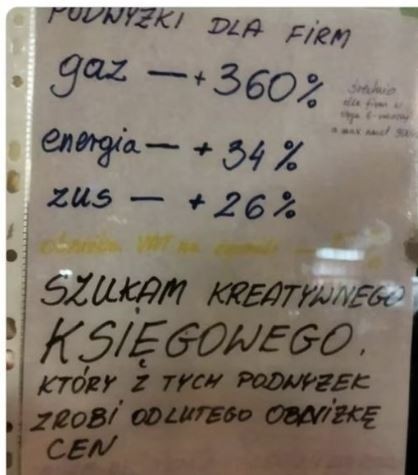 PODWYŻKI DLA FIRM
gaz — + 360%
średnio
dla firm w
energia — + 34%
zus — + 26%
obniżka VAT na
SZUKAM KREATYWNEGO
KSIĘGOWEGO,
KTÓRY Z TYCH PODWYŻEK
ZROBI OD LUTEGO OBNIŻKĘ
CEN